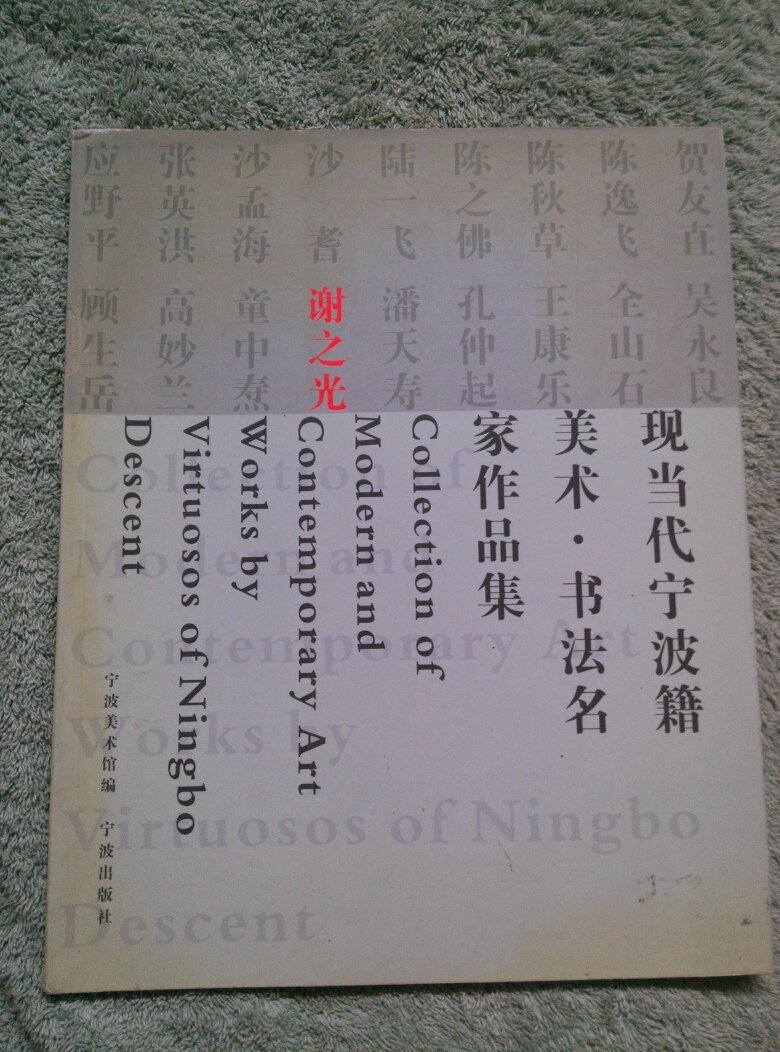 贺友直
陈逸飞
陈秋草
陈之佛
陆一飞
沙耆
沙孟海
张英洪
应野平
吴永良
全山石
王康乐
孔仲起
潘天寿
谢之光
童中焘
高妙兰
顾生岳
现当代宁波籍
美术·书法名
家作品集
Collection of
Modern and
Contemporary Art
Works by
Virtuosos of Ningbo
Descent
Collection of
Modern and
Contemporary Art
Works by
Virtuosos of Ningbo
Descent
宁波美术馆编 宁波出版社